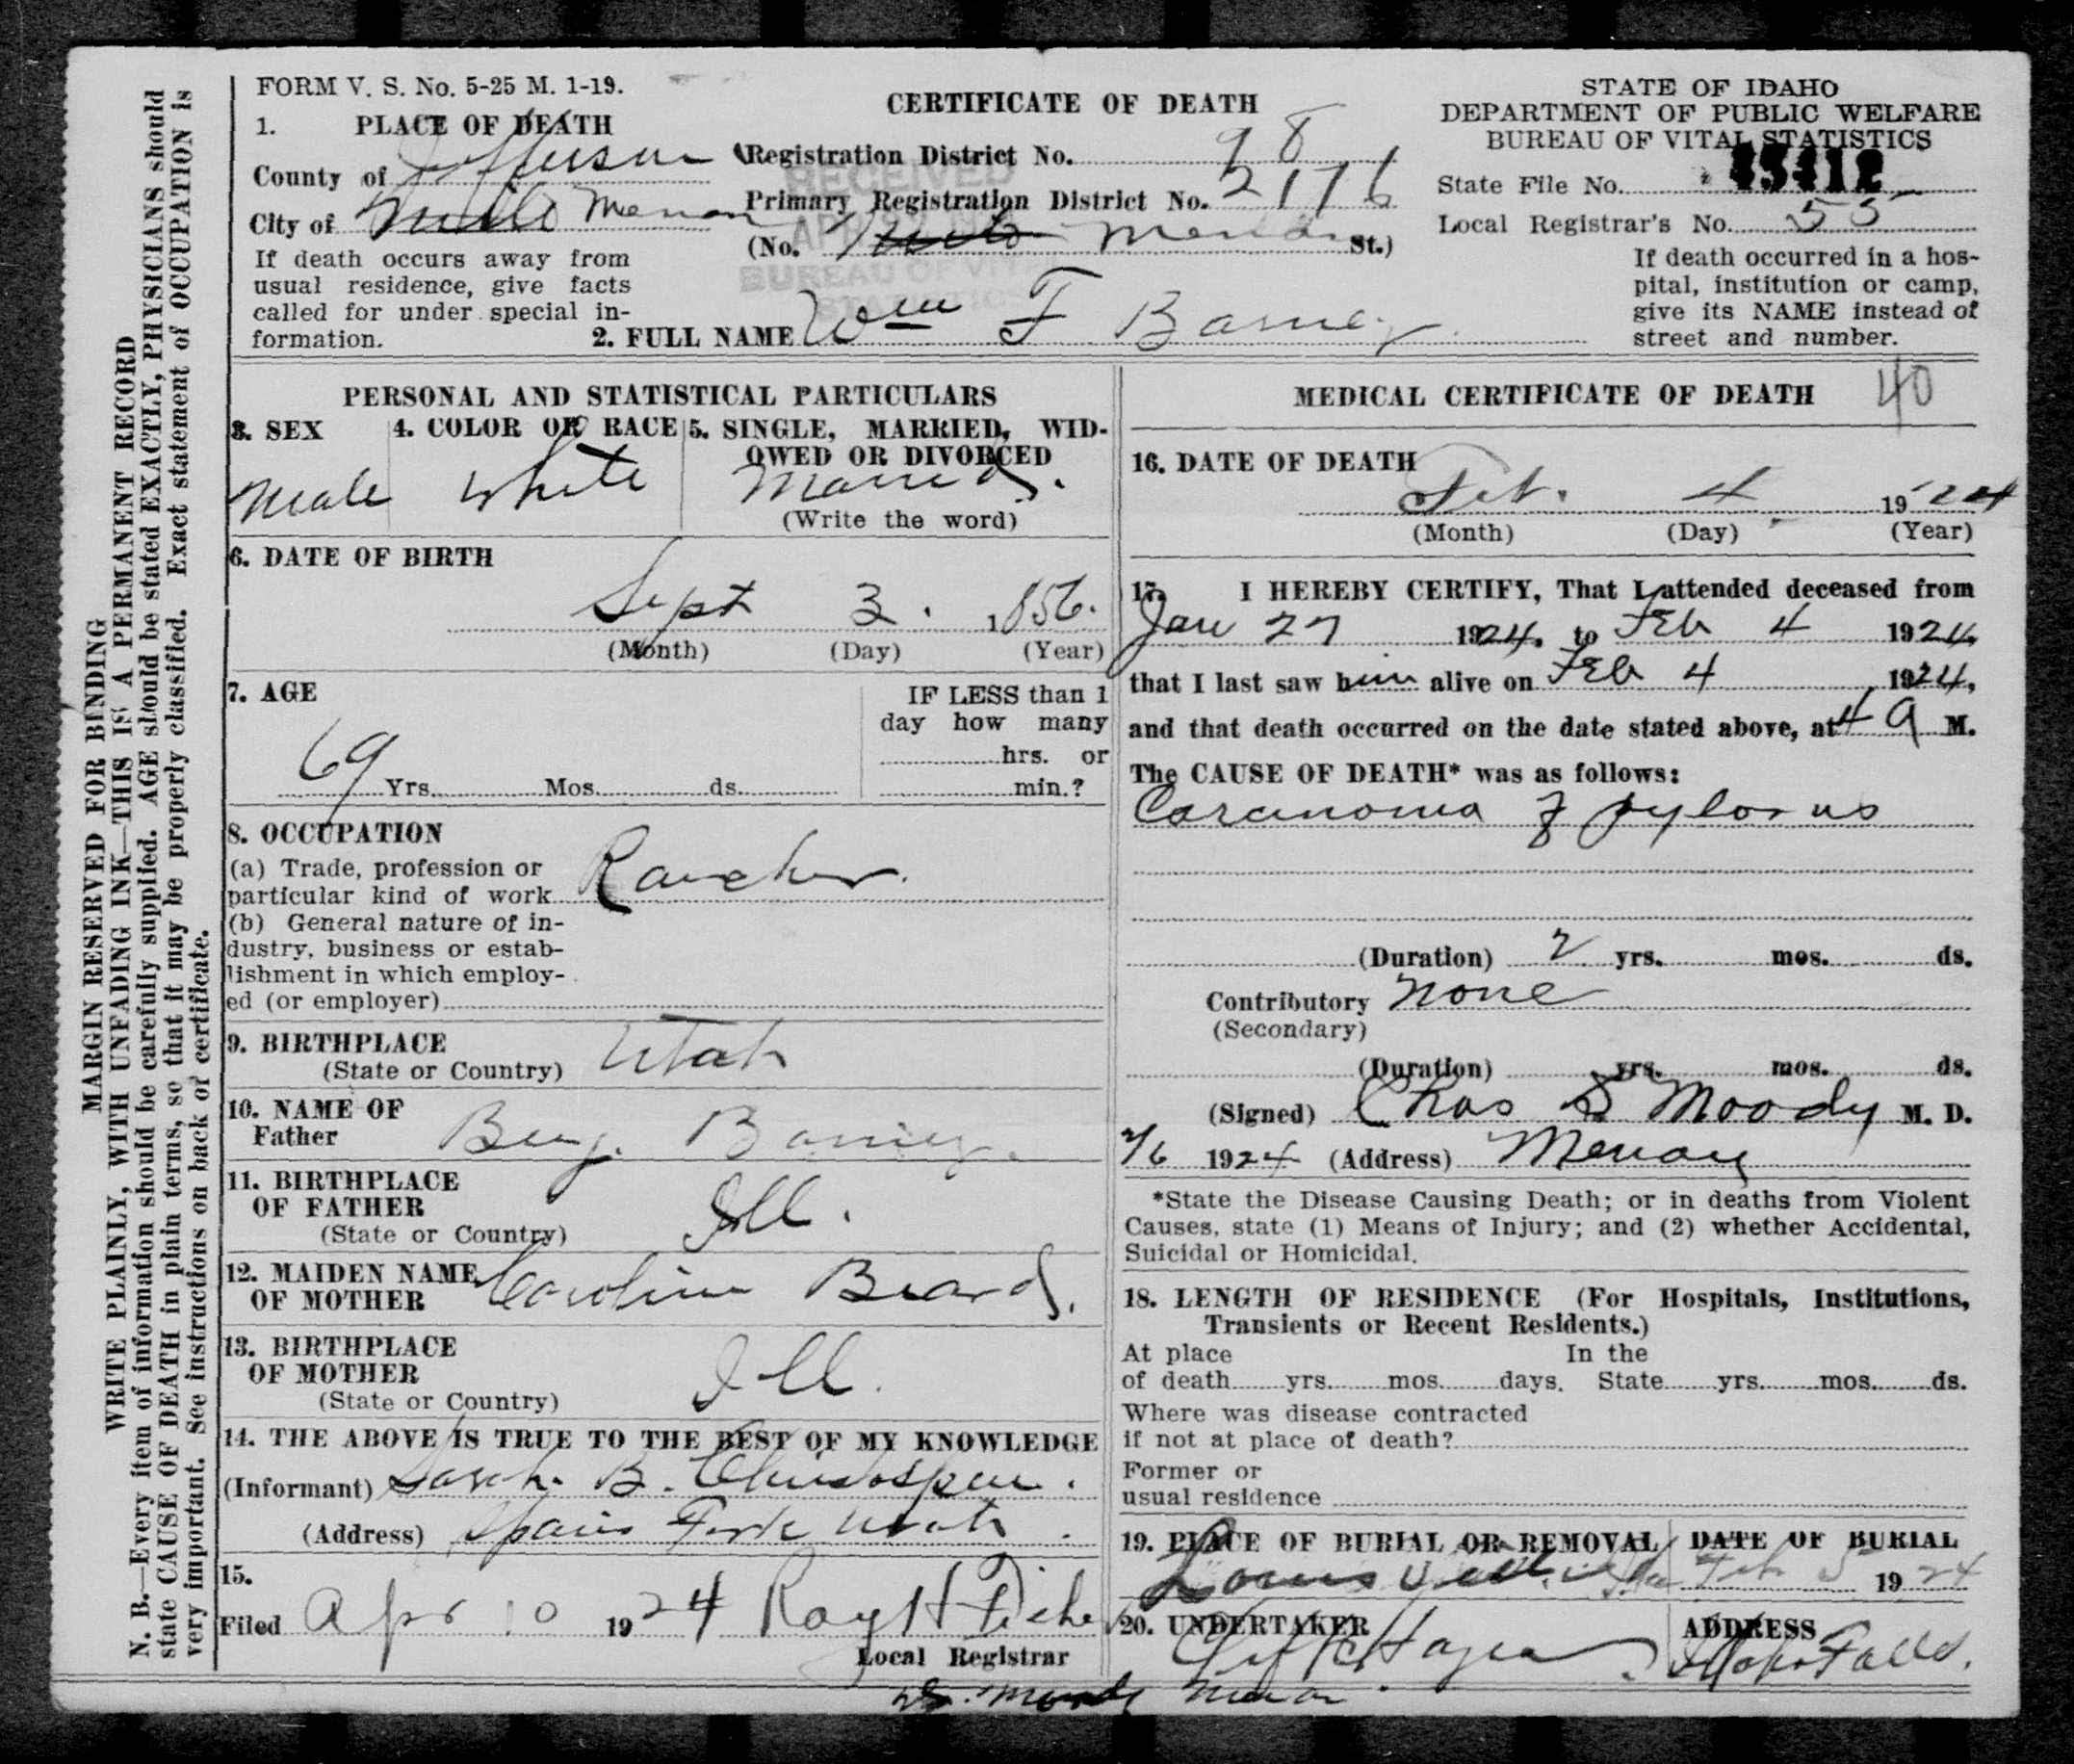 FORM V. S. No. 5-25 M. 1-19.
CERTIFICATE OF DEATH
STATE OF IDAHO
DEPARTMENT OF PUBLIC WELFARE
BUREAU OF VITAL STATISTICS
1. PLACE OF DEATH
County of Jefferson
City of Menan
If death occurs away from
usual residence, give facts
called for under special in-
formation.
Registration District No. 98
Primary Registration District No. 2176
(No. Menan St.)
RECEIVED
BUREAU OF VITAL
STATISTICS
State File No. 45412
Local Registrar's No. 55
If death occurred in a hos-
pital, institution or camp,
give its NAME instead of
street and number.
2. FULL NAME Wm F Barney
PERSONAL AND STATISTICAL PARTICULARS
3. SEX
Male
4. COLOR OR RACE
White
5. SINGLE, MARRIED, WID-
OWED OR DIVORCED
Married.
(Write the word)
6. DATE OF BIRTH
Sept 3. 1856.
(Month) (Day) (Year)
7. AGE
69 Yrs. Mos. ds.
IF LESS than 1
day how many
hrs. or
min.?
8. OCCUPATION
(a) Trade, profession or
particular kind of work Rancher.
(b) General nature of in-
dustry, business or estab-
lishment in which employ-
ed (or employer)
9. BIRTHPLACE
(State or Country) Utah
10. NAME OF
Father Benj. Barney.
11. BIRTHPLACE
OF FATHER
(State or Country) Ill.
12. MAIDEN NAME
OF MOTHER Caroline Beard.
13. BIRTHPLACE
OF MOTHER
(State or Country) Ill.
14. THE ABOVE IS TRUE TO THE BEST OF MY KNOWLEDGE
(Informant) Sarah B.
(Address) Spanis Fork Utah
15.
Filed Apr 10 1924 Roy H
Local Registrar
MEDICAL CERTIFICATE OF DEATH 40
16. DATE OF DEATH
Feb. 4 1924
(Month) (Day) (Year)
17. I HEREBY CERTIFY, That I attended deceased from
Jan 27 1924, to Feb 4 1924
that I last saw him alive on Feb 4 1924,
and that death occurred on the date stated above, at 4 a M.
The CAUSE OF DEATH* was as follows:
Carcinoma of pylorus
(Duration) 2 yrs. mos. ds.
Contributory none
(Secondary)
(Duration) yrs. mos. ds.
(Signed) Chas S Moody M. D.
2/6 1924 (Address) Menan
*State the Disease Causing Death; or in deaths from Violent
Causes, state (1) Means of Injury; and (2) whether Accidental,
Suicidal or Homicidal.
18. LENGTH OF RESIDENCE (For Hospitals, Institutions,
Transients or Recent Residents.)
At place In the
of death yrs. mos. days. State yrs. mos. ds.
Where was disease contracted
if not at place of death?
Former or
usual residence
19. PLACE OF BURIAL OR REMOVAL
DATE OF BURIAL
Feb 5 1924
20. UNDERTAKER
ADDRESS
Idaho Falls.
Dr. Moody Menan
MARGIN RESERVED FOR BINDING
WRITE PLAINLY, WITH UNFADING INK—THIS IS A PERMANENT RECORD
N. B.—Every item of information should be carefully supplied. AGE should be stated EXACTLY, PHYSICIANS should
state CAUSE OF DEATH in plain terms, so that it may be properly classified. Exact statement of OCCUPATION is
very important. See instructions on back of certificate.